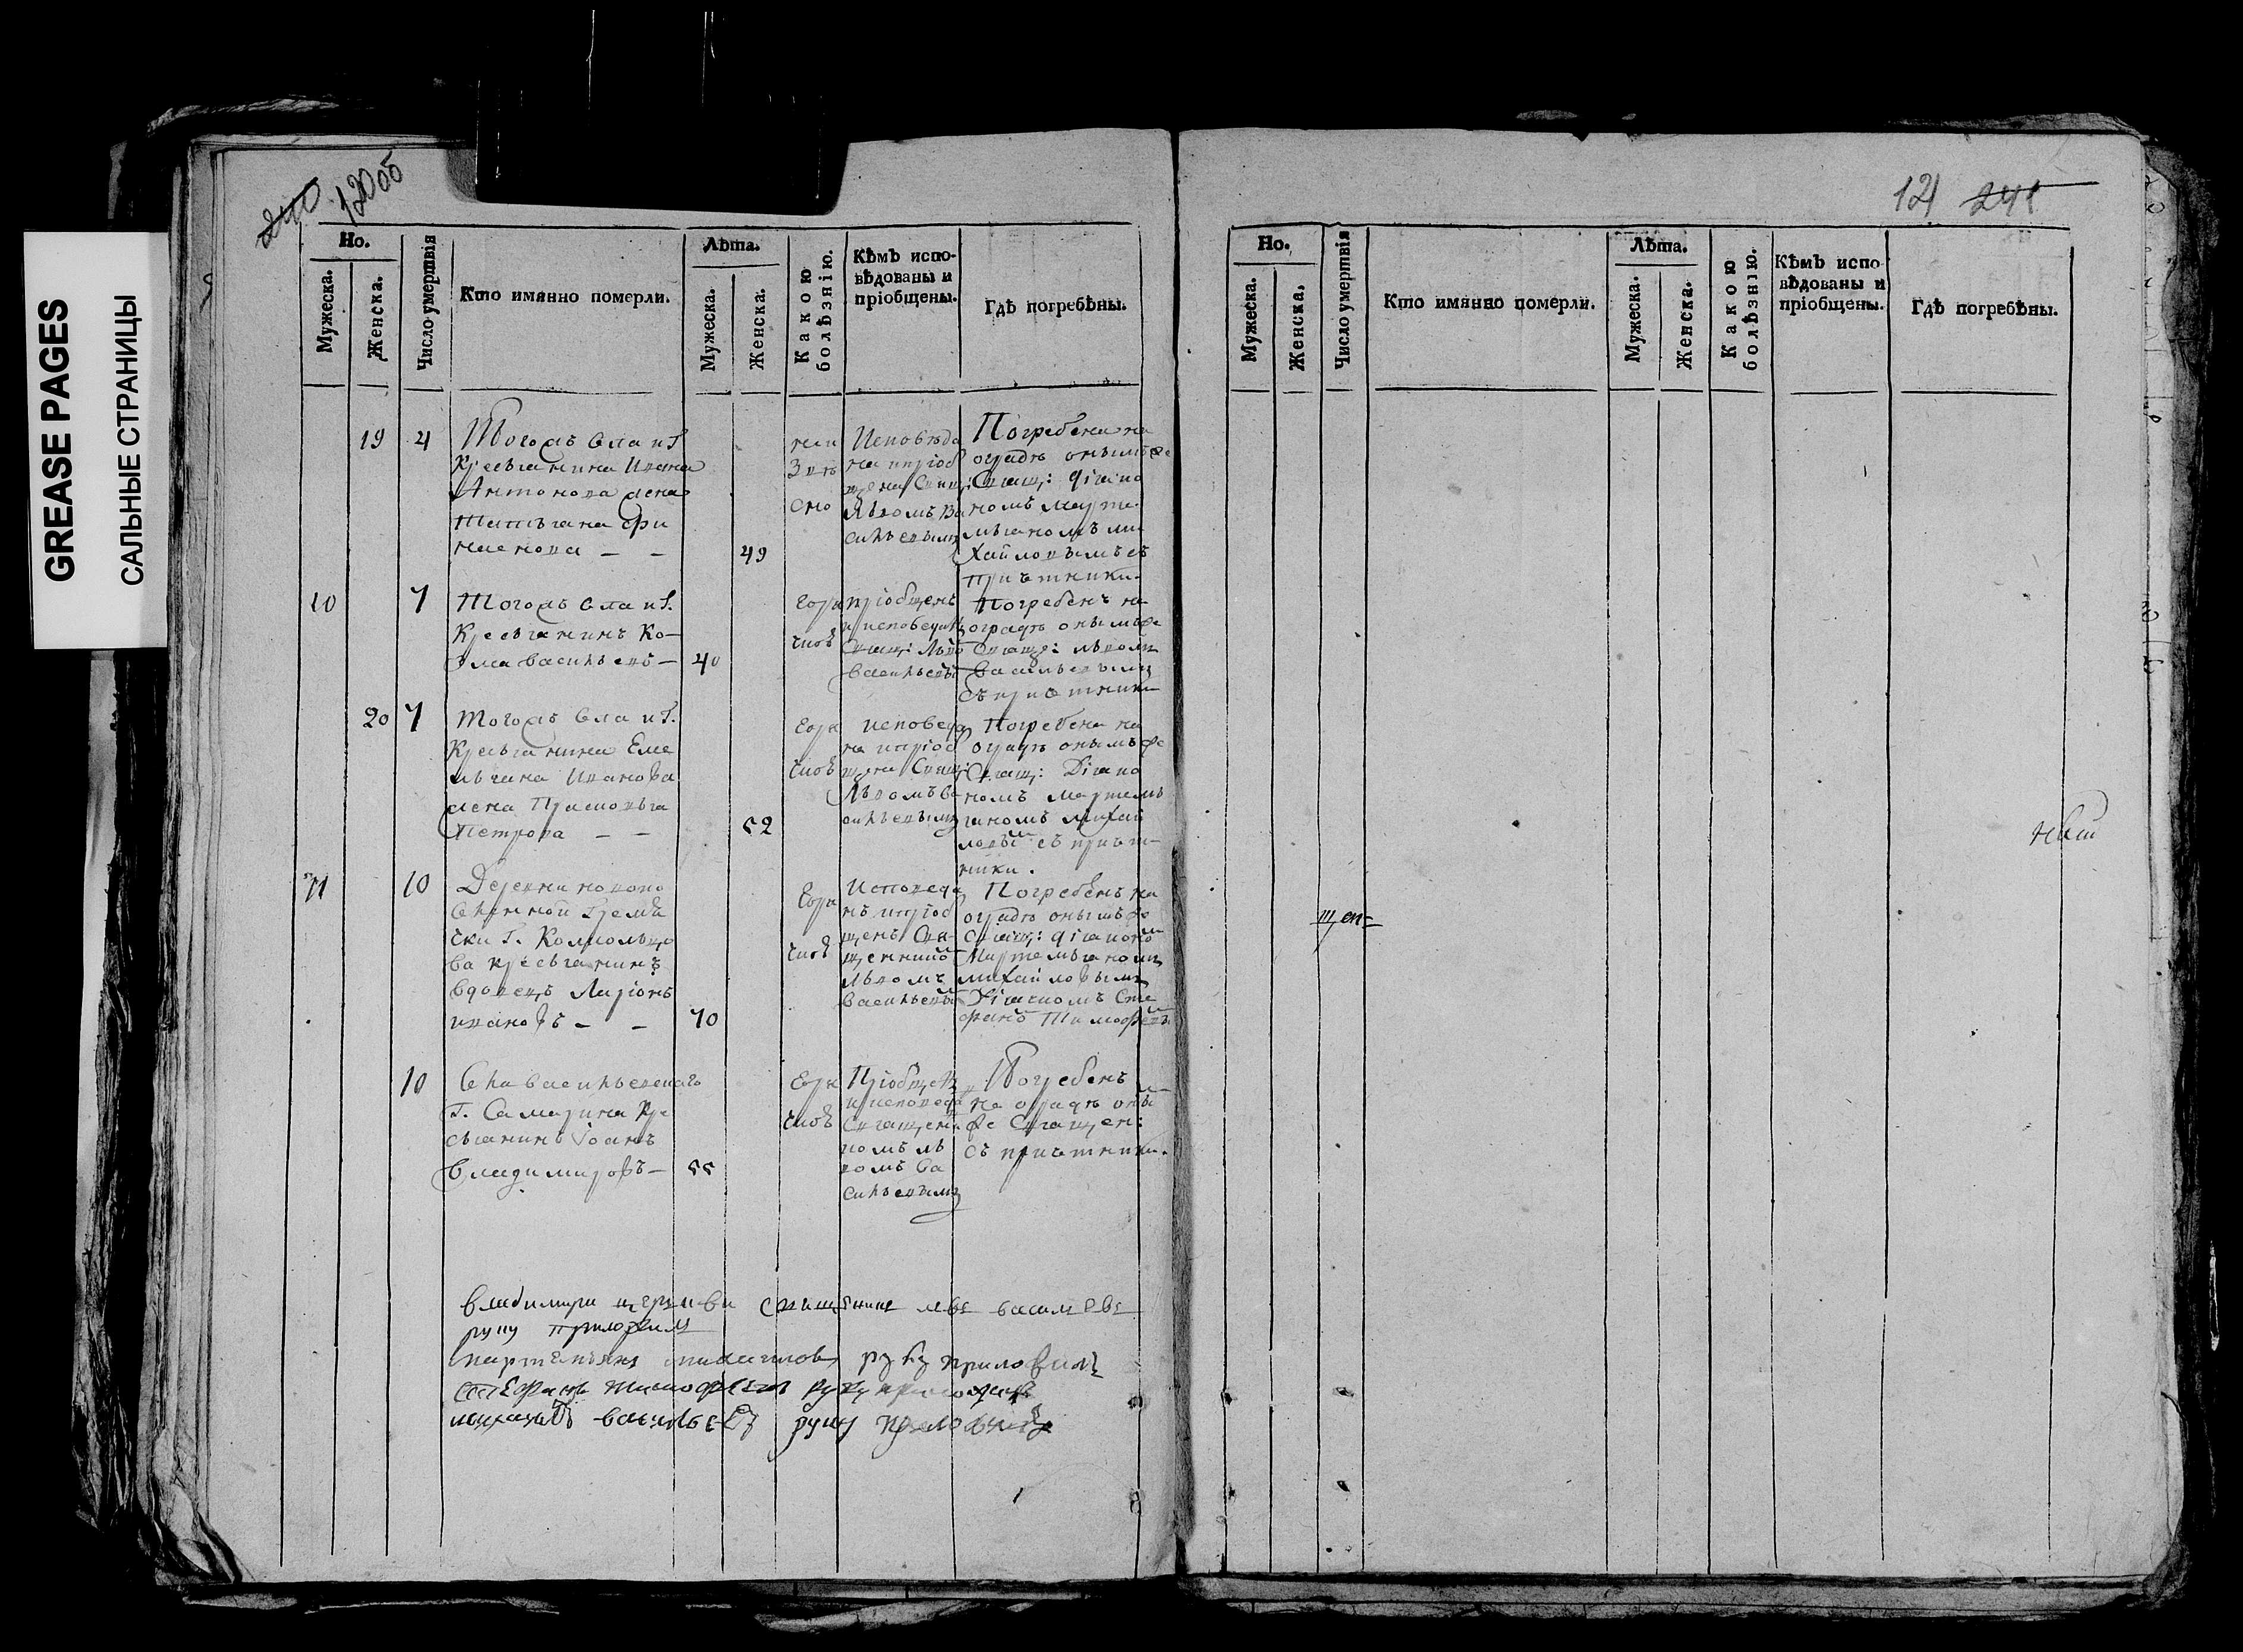 GREASE PAGES
САЛЬНЫЕ СТРАНИЦЫ
240 120об
Но.
Мужеска.
Женска.
Число умертвія
Кто имянно померли.
Лѣта.
Мужеска.
Женска.
Какою болѣзнію.
Кѣмъ испо-
вѣдованы и
пріобщены.
Гдѣ погребѣны.
19 4
Тогожъ села и Г.
Крестьянина Ивана
Антонова жена
Татьяна
49
Исповѣда
на и пріоб
щена Свящ:
Львомъ Ва
сильевымъ
Погребена на
оградѣ онымъ же
Свящ: діако
номъ Марте
мьяномъ Ми
хайловымъ съ
причтники.
10 7
Тогожъ села и Г.
Крестьянинъ Ко-
зма Васильевъ —
40
Горя
чкою
пріобщенъ
и исповеданъ
Свящ: Льво
Васильевы
Погребенъ на
оградѣ онымъ же
Свящ: Львомъ
Васильевымъ
съ причтники
20 7
Тогожъ села и Г.
Крестьянина Еме
льяна Иванова
жена Прасковья
Петрова — —
52
Горя
чкою
исповеда
на и пріоб
щена Свящ:
Львомъ Ва
сильевымъ
Погребена на
оградѣ онымъ же
Свящ: Діако
номъ Мартемь
яномъ Михай
ловым съ причт
ники.
11 10
Деревни новопо
Гремя
чки Г. Колкольцо
ва крестьянинъ
вдовецъ Ларіонъ
Ивановъ — —
70
Горя
чкою
Исповеда
нъ и пріоб
щенъ Свя-
щенником
Львомъ
Васильевым
Погребенъ на
оградѣ онымъ же
Свящ: діаконом
Мартемьяномъ
Михайловымъ
Діачкомъ Сте
фаном Тимофеев
10
Села Васильевскаго
Г. Самарина Кре
стьянинъ Іоанъ
Владимировъ —
55
Горя
чкою
Пріобщенъ
и исповеда
Священни
комъ Ль
вомъ Ва
сильевымъ
Погребенъ
на оградѣ оны
же Священ:
съ причтники.
священникъ левъ васильевъ
руку приложилъ
мартемьянъ михаиловъ руку приложилъ
стефанъ тимофеевъ руку приложилъ
васильевъ руку приложилъ
121 241
Но.
Мужеска.
Женска.
Число умертвія
Кто имянно померли.
Лѣта.
Мужеска.
Женска.
Какою болѣзнію.
Кѣмъ испо-
вѣдованы и
пріобщены.
Гдѣ погребѣны.
щен=